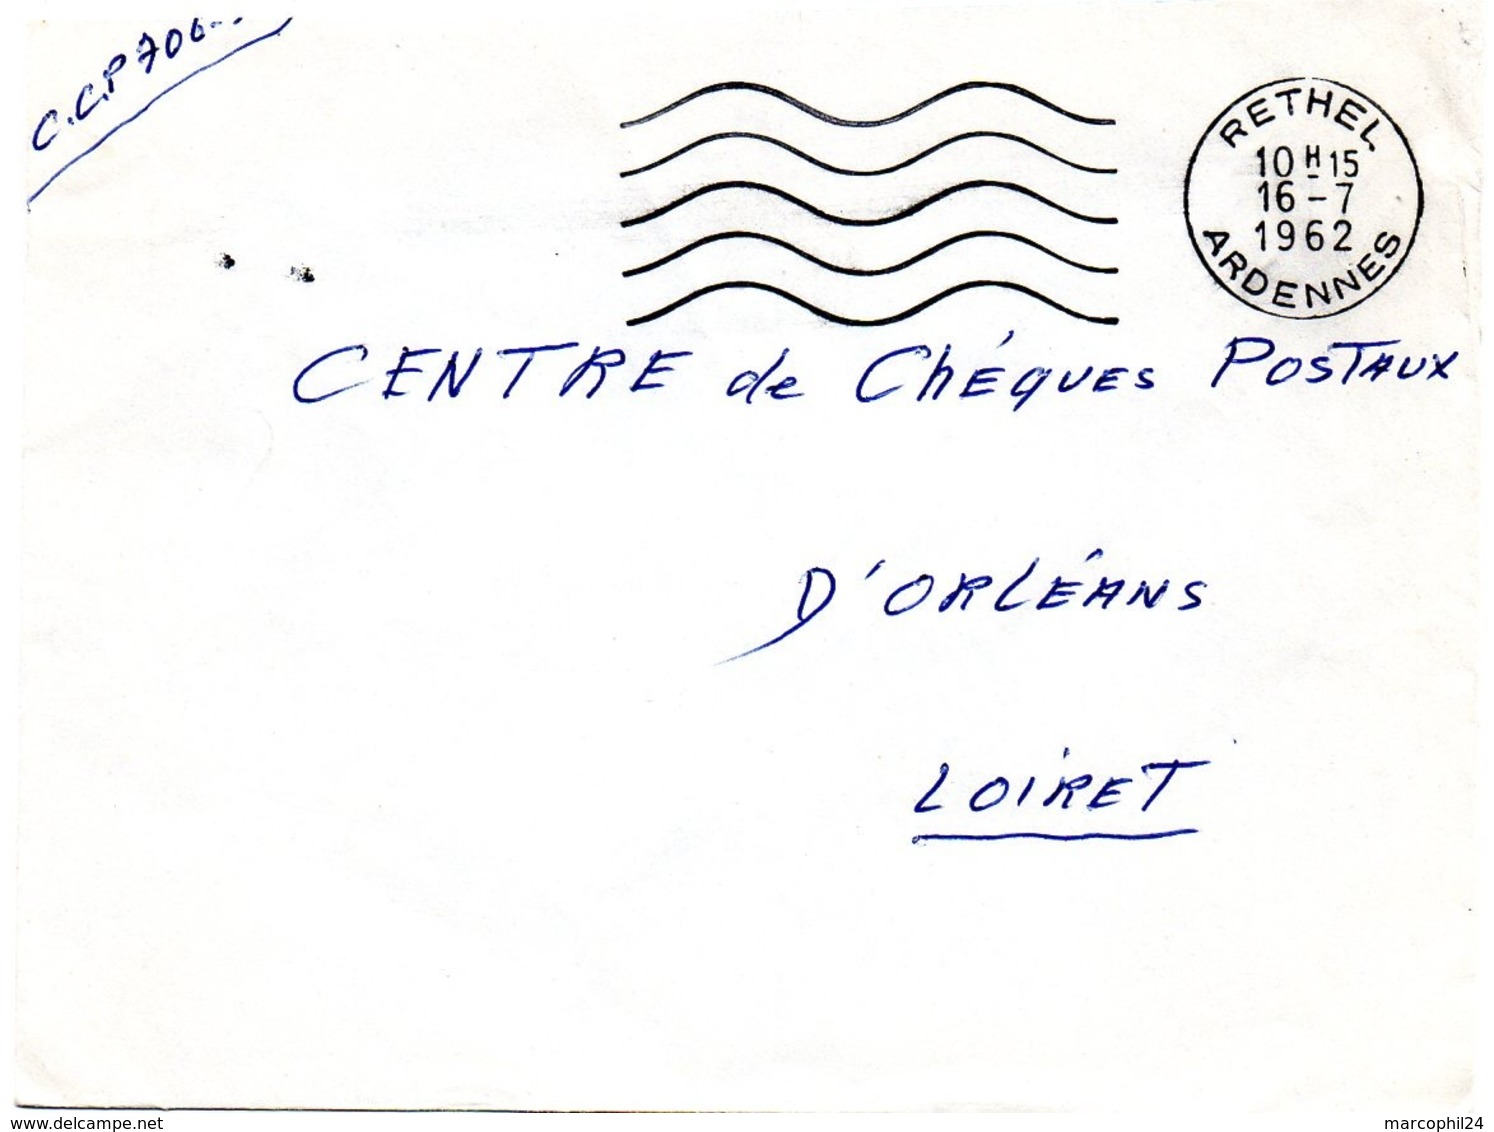 C.C.P 706
RETHEL
10 H 15
16-7
1962
ARDENNES
CENTRE de Chéques POSTAUX
D'ORLÉANS
LOIRET
www.delcampe.net
marcophil24